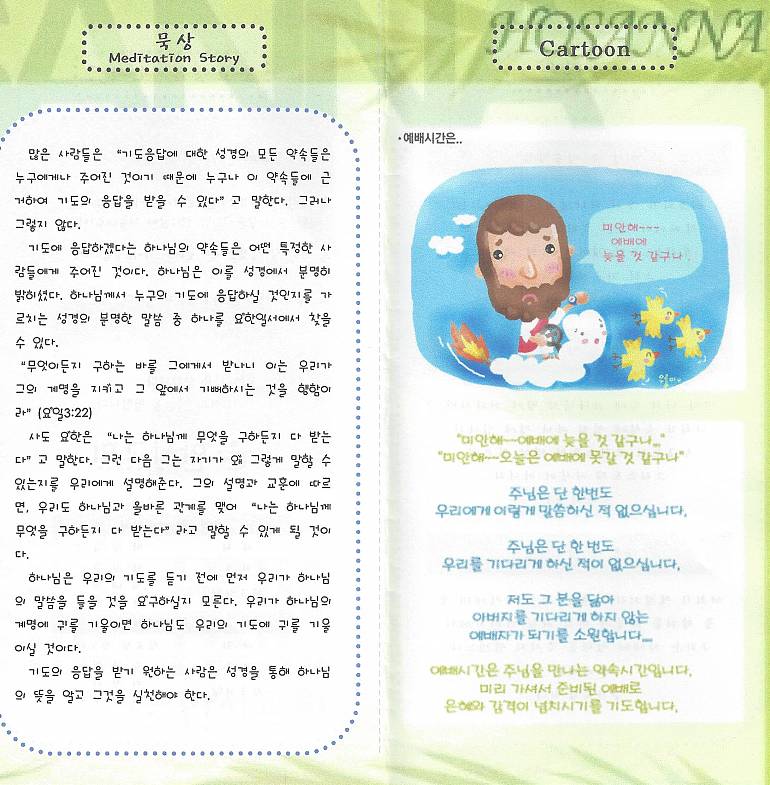 묵상
Meditation Story
많은 사람들은 “기도응답에 대한 성경의 모든 약속들은
누구에게나 주어진 것이기 때문에 누구나 이 약속들에 근
거하여 기도의 응답을 받을 수 있다” 고 말한다. 그러나
그렇지 않다.
기도에 응답하겠다는 하나님의 약속들은 어떤 특정한 사
람들에게 주어진 것이다. 하나님은 이를 성경에서 분명히
밝히셨다. 하나님께서 누구의 기도에 응답하실 것인지를 가
르치는 성경의 분명한 말씀 중 하나를 요한일서에서 찾을
수 있다.
“무엇이든지 구하는 바를 그에게서 받나니 이는 우리가
그의 계명을 지키고 그 앞에서 기뻐하시는 것을 행함이
라” (요일3:22)
사도 요한은 “나는 하나님께 무엇을 구하든지 다 받는
다” 고 말한다. 그런 다음 그는 자기가 왜 그렇게 말할 수
있는지를 우리에게 설명해준다. 그의 설명과 교훈에 따르
면, 우리도 하나님과 올바른 관계를 맺어 “나는 하나님께
무엇을 구하든지 다 받는다” 라고 말할 수 있게 될 것이
다.
하나님은 우리의 기도를 듣기 전에 먼저 우리가 하나님
의 말씀을 들을 것을 요구하실지 모른다. 우리가 하나님의
계명에 귀를 기울이면 하나님도 우리의 기도에 귀를 기울
이실 것이다.
기도의 응답을 받기 원하는 사람은 성경을 통해 하나님
의 뜻을 알고 그것을 실천해야 한다.
HOSANNA
Cartoon
·예배시간은..
미안해~~~
예배에
늦을 것 같구나.
“미안해~~예배에 늦을 것 같구나,,,”
“미안해~~오늘은 예배에 못갈 것 같구나”
주님은 단 한번도
우리에게 이렇게 말씀하신 적 없으십니다.
주님은 단 한 번도
우리를 기다리게 하신 적이 없으십니다.
저도 그 분을 닮아
아버지를 기다리게 하지 않는
예배자가 되기를 소원합니다,,,,
예배시간은 주님을 만나는 약속시간입니다.
미리 가셔서 준비된 예배로
은혜와 감격이 넘치시기를 기도합니다.